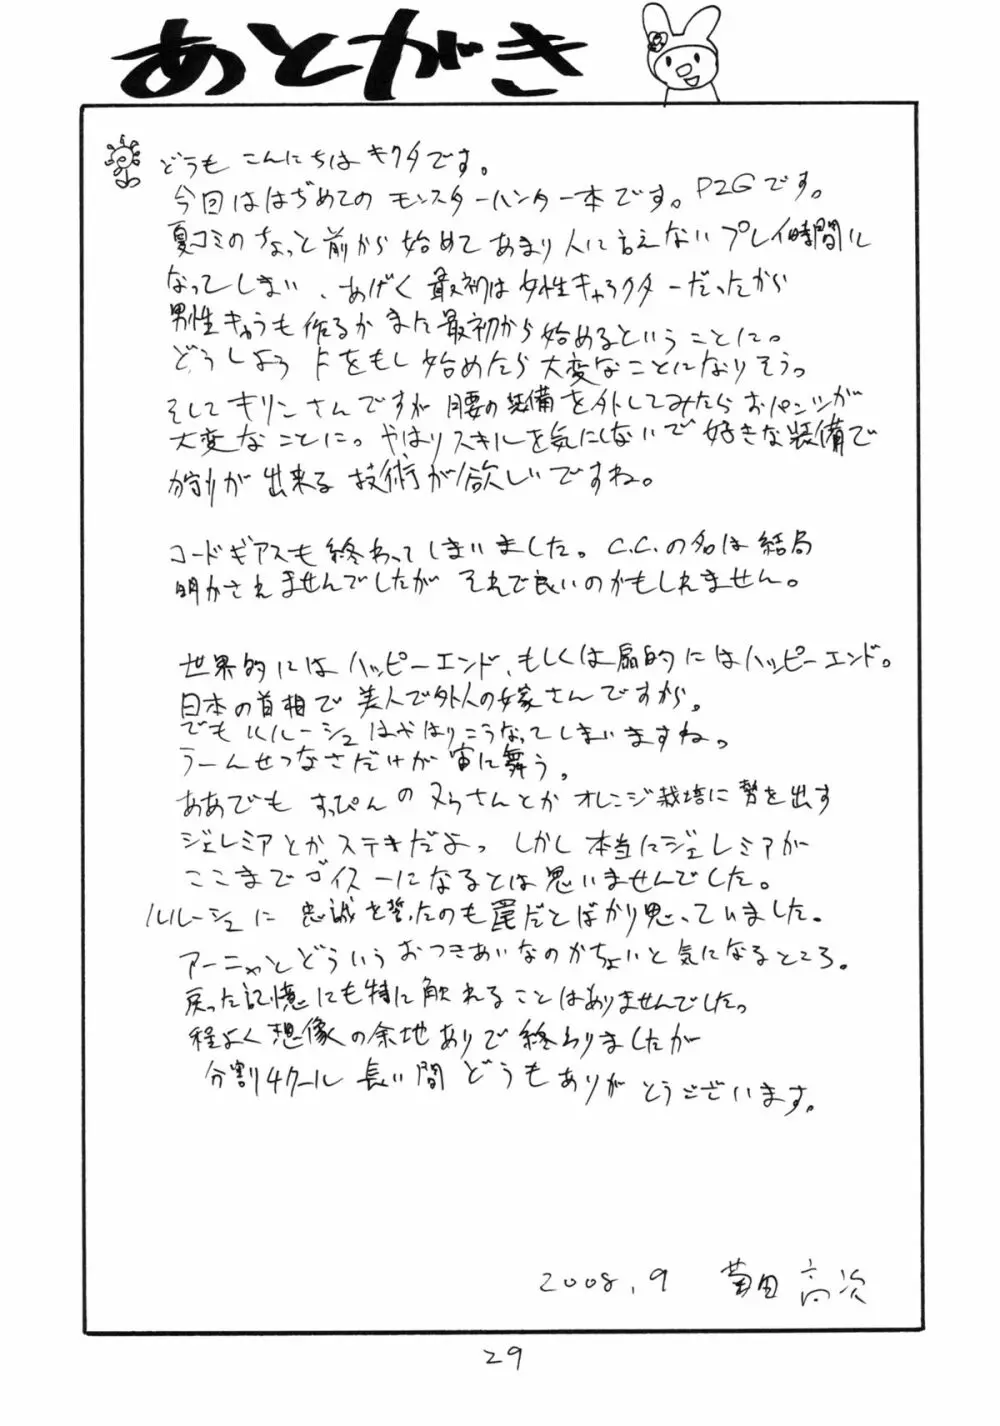 あとがき
どうも こんにちは キクタです。
今回ははじめての モンスターハンター本です。P2Gです。
夏コミのちょっと前から始めてあまり人に言えないプレイ時間に
なってしまい、あげく最初は女性キャラクターだったから
男性キャラも作るかまた最初から始めるということに。
どうしよう Fをもし始めたら大変なことになりそう。
そしてキリンさんですが 腰の装備を外してみたらおパンツが
大変なことに。やはりスキルを気にしないで好きな装備で
狩りが出来る技術が欲しいですね。
コードギアスも終わってしまいました。C.C.の名は結局
明かされませんでしたが それで良いのかもしれません。
世界的にはハッピーエンド、もしくは扇的にはハッピーエンド。
日本の首相で美人で外人の嫁さんですが。
でもルルーシュはやはりこうなってしまいますね。
うーんせつなさだけが宙に舞う。
ああでも すっぴんのヌゥさんとか オレンジ栽培に勢を出す
ジェレミアとかステキだよっ しかし本当にジェレミアが
ここまでゴイスーになるとは思いませんでした。
ルルーシュに 忠誠を誓ったのも罠だとばかり思っていました。
アーニャとどういうおつきあいなのかちょいと気になるところ。
戻った記憶にも特に触れることはありませんでした。
程よく想像の余地ありで終わりましたが
分割4クール 長い間 どうもありがとうございます。
2008.9 菊田 高次
29